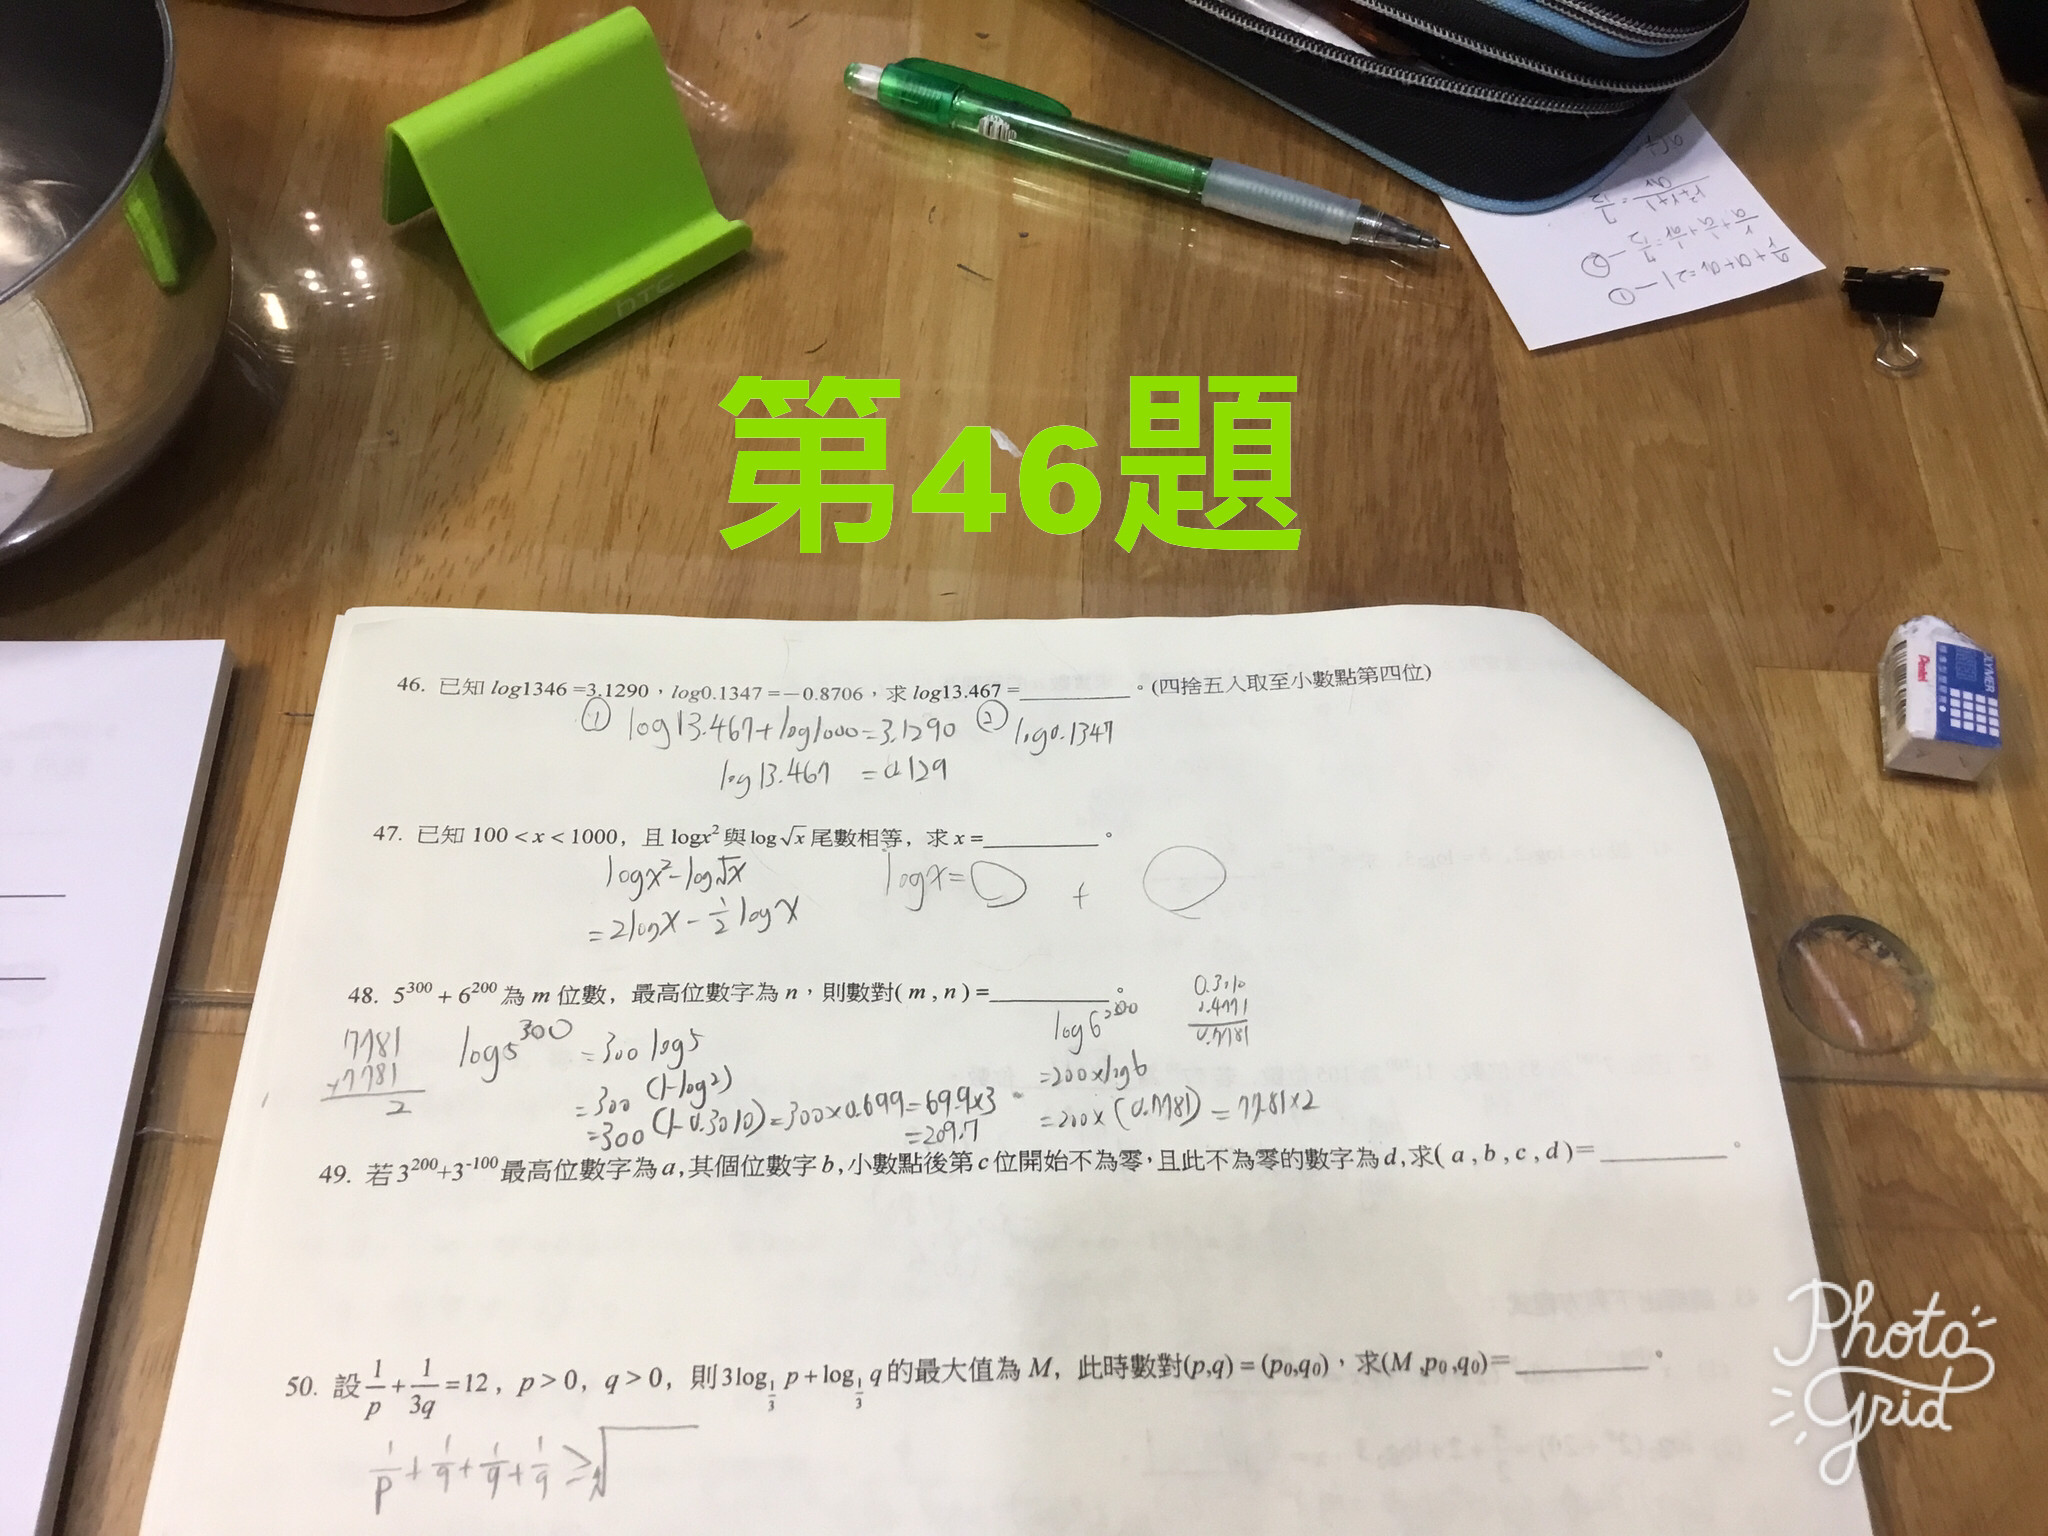 第46題
46. 已知 log1346 =3.1290，log0.1347 =−0.8706，求 log13.467 =________。(四捨五入取至小數點第四位)
① log13.467+log1000=3.1290 ② log0.1347
log13.467 =0.129
47. 已知 100 < x < 1000，且 logx² 與 log√x 尾數相等，求 x =________。
logx²-log√x logx= +
=2logx-½logx
48. 5³⁰⁰ + 6²⁰⁰ 為 m 位數，最高位數字為 n，則數對( m , n ) =________。
7781
+7781
2
log5³⁰⁰ =300log5
=300(1-log2)
=300(1-0.3010)=300×0.699=69.9×3
=209.7
log6²⁰⁰
=200×log6
=200×(0.7781)=77.81×2
0.3010
0.4771
0.7781
49. 若 3²⁰⁰+3⁻¹⁰⁰ 最高位數字為 a,其個位數字 b,小數點後第 c 位開始不為零，且此不為零的數字為 d,求( a , b , c , d )=________。
50. 設 1/p + 1/3q =12，p > 0，q > 0，則 3log_{1/3} p + log_{1/3} q 的最大值為 M，此時數對(p,q) = (p₀,q₀)，求(M ,p₀,q₀)=________。
1/p + 1/q + 1/q + 1/q ≥ √
a/r + a + ar = 21 — ①
Pentel
POLYMER
hTC
Photo
Grid